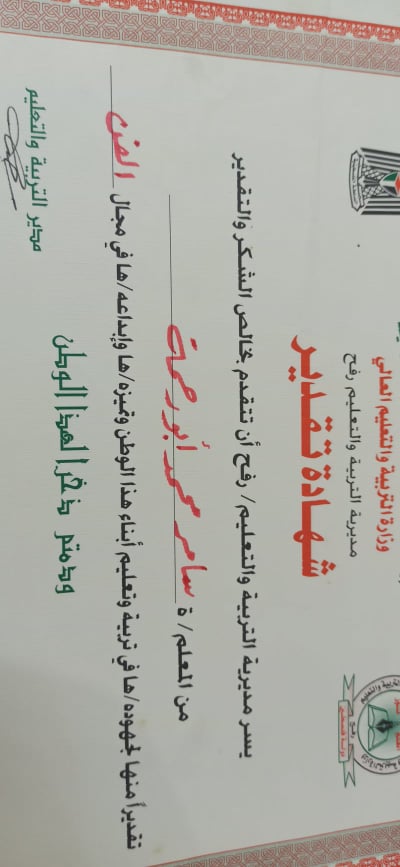 وزارة التربية والتعليم العالي
مديرية التربية والتعليم رفح
شهادة تقدير
يسر مديرية التربية والتعليم/ رفح أن تتقدم بخالص الشكر والتقدير
من المعلم/ة سامر محمد أبو رحمة
تقديراً منها لجهوده/ها في تربية وتعليم أبناء هذا الوطن وتميزه/ها وإبداعه/ها في مجال الفن
ودمتم ذخراً لهذا الوطن
مدير التربية والتعليم